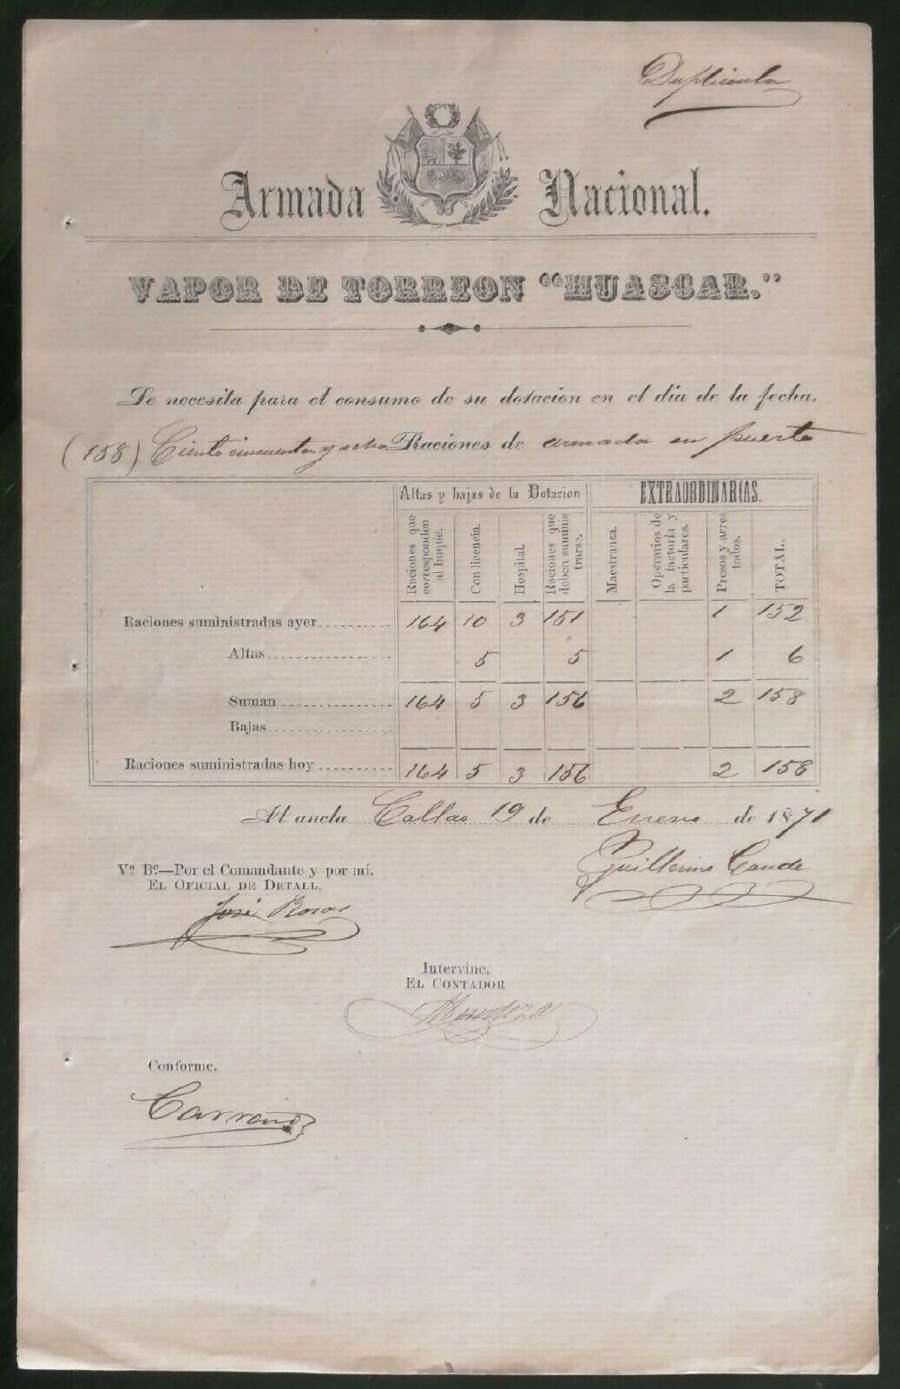 Duplicado
Armada Nacional.
VAPOR DE TORREON "HUASCAR."
Se necesita para el consumo de su dotacion en el dia de la fecha.
(158) Ciento cincuenta y ocho Raciones de armada en puerto
Altas y bajas de la Dotacion EXTRAORDINARIAS.
Raciones que corresponden al buque. Con licencia. Hospital. Raciones que deben suminis trarse. Maestranza. Operarios de la factoría y particulares. Presos y arres tados. TOTAL.
Raciones suministradas ayer 164 10 3 151 1 152
Altas 5 5 1 6
Suman 164 5 3 156 2 158
Bajas
Raciones suministradas hoy 164 5 3 156 2 158
Al ancla Callao 19 de Enero de 1871
Guillermo
Vº Bº—Por el Comandante y por mí.
EL OFICIAL DE DETALL.
José Rosas
Intervine,
EL CONTADOR
Mendoza
Conforme.